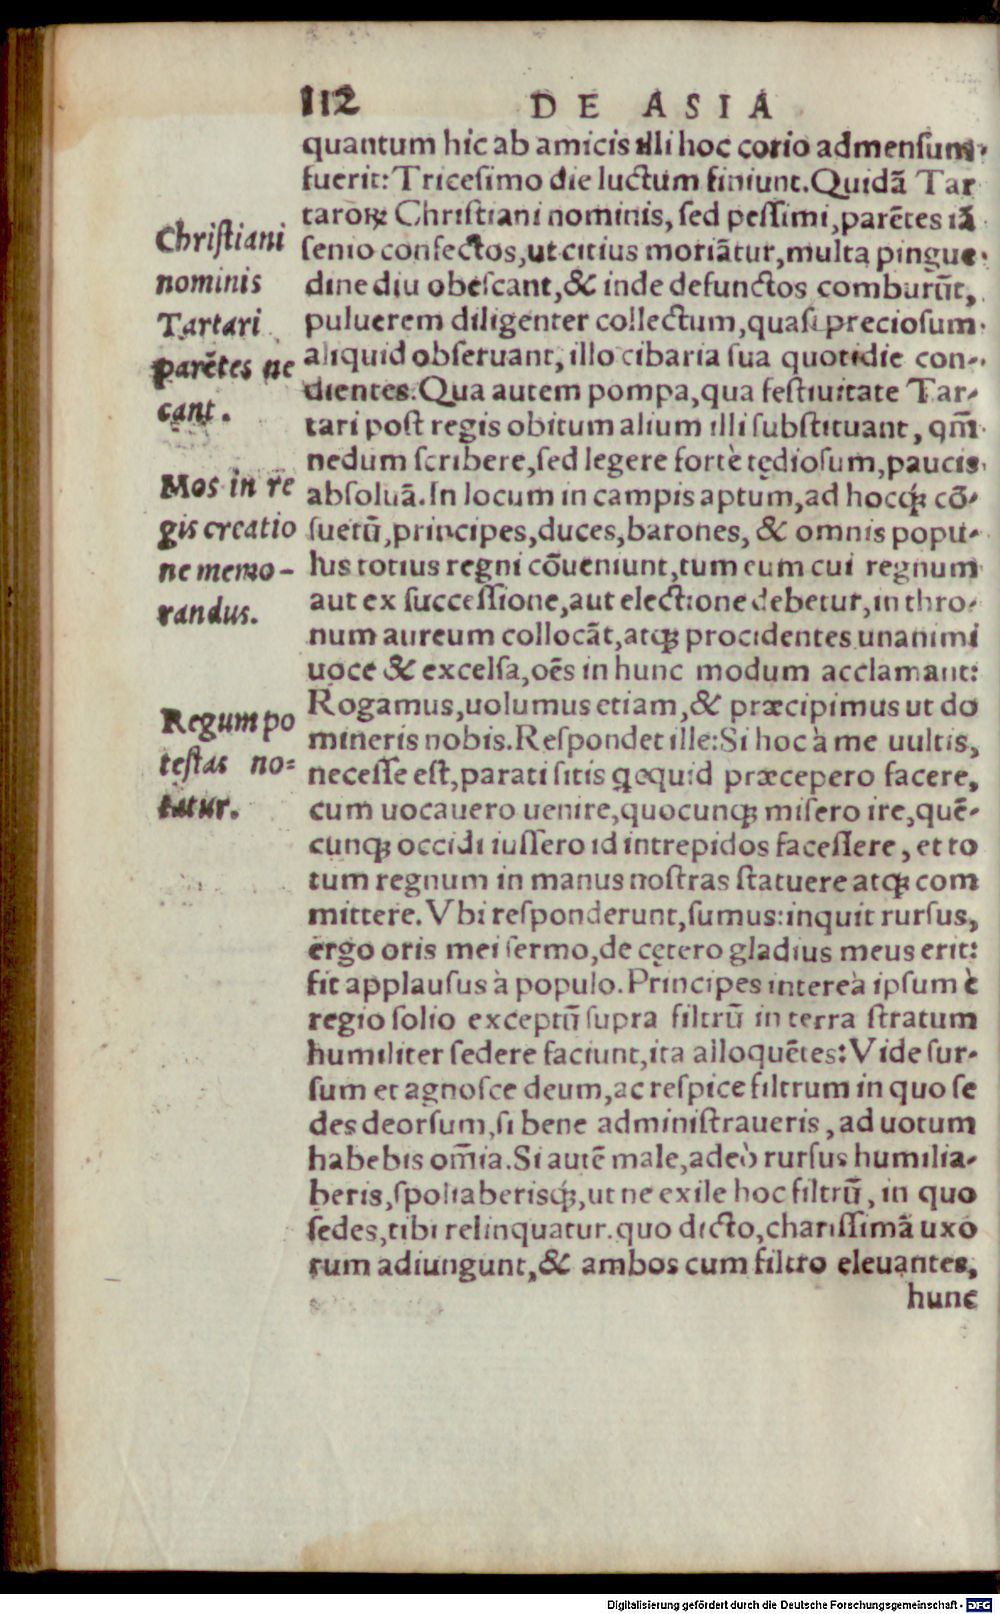 112 DE ASIA
quantum hic ab amicis illi hoc corio admensum
fuerit: Tricesimo die luctum finiunt. Quidã Tar
tarorꝝ Christiani nominis, sed pessimi, parẽtes iã
senio confectos, ut citius moriãtur, multa pingue
dine diu obescant, & inde defunctos comburũt,
puluerem diligenter collectum, quasi preciosum
aliquid obseruant, illo cibaria sua quotidie con-
dientes. Qua autem pompa, qua festiuitate Tar-
tari post regis obitum alium illi substituant, qm̃
nedum scribere, sed legere fortè tędiosum, paucis
absoluã. In locum in campis aptum, ad hocq́ꝫ cõ-
suetũ, principes, duces, barones, & omnis popu-
lus totius regni cõueniunt, tum eum cui regnum
aut ex successione, aut electione debetur, in thro-
num aureum collocãt, atqꝫ procidentes unanimi
uoce & excelsa, oẽs in hunc modum acclamant:
Rogamus, uolumus etiam, & præcipimus ut do
mineris nobis. Respondet ille: Si hoc à me uultis,
necesse est, parati sitis qͥcquid præcepero facere,
cum uocauero uenire, quocunqꝫ misero ire, quẽ-
cunqꝫ occidi iussero id intrepidos facessere, et to
tum regnum in manus nostras statuere atqꝫ com
mittere. Vbi responderunt, sumus: inquit rursus,
ergo oris mei sermo, de cętero gladius meus erit:
fit applausus à populo. Principes intereà ipsum è
regio solio exceptũ supra filtrũ in terra stratum
humiliter sedere faciunt, ita alloquẽtes: Vide sur-
sum et agnosce deum, ac respice filtrum in quo se
des deorsum, si bene administraueris, ad uotum
habebis om̃ia. Si autẽ male, adeò rursus humilia-
beris, spoliaberisq́ꝫ, ut ne exile hoc filtrũ, in quo
sedes, tibi relinquatur. quo dicto, charissimã uxo
rum adiungunt, & ambos cum filtro eleuantes,
hunc
Christiani
nominis
Tartari
parẽtes ne
cant.
Mos in re
gis creatio
ne memo-
randus.
Regum po
testas no-
tatur.
Digitalisierung gefördert durch die Deutsche Forschungsgemeinschaft - DFG